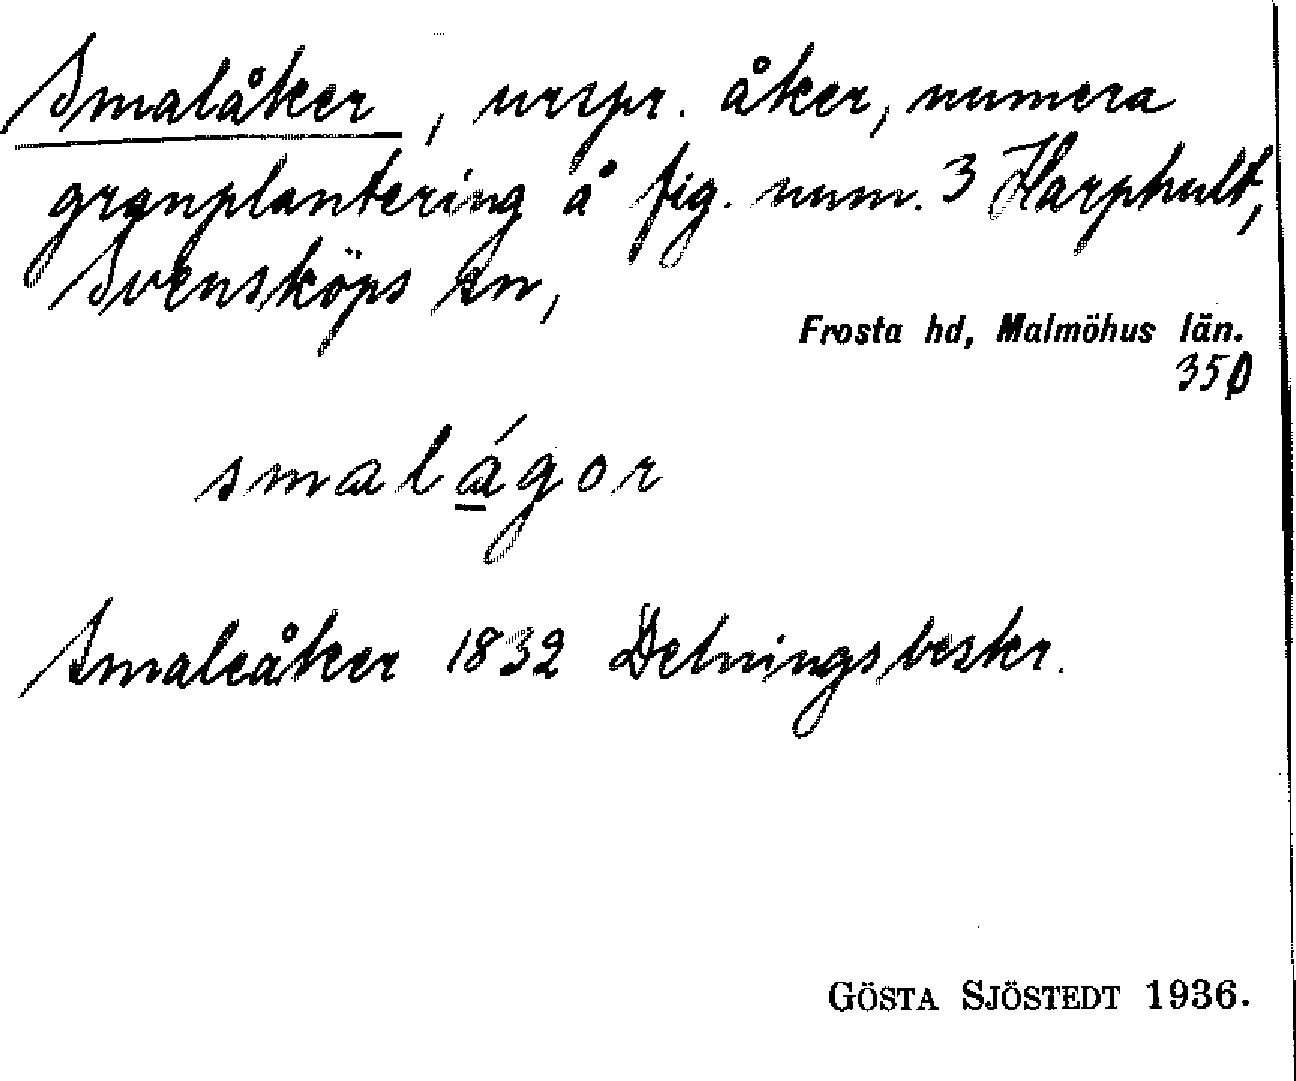 Smalåker, urspr. åker, numera
granplantering å fig. num. 3 Harphult,
Svensköps sn,
Frosta hd, Malmöhus län.
35D
smalágor
Smaleåker 1832 Delningsbeskr.
GÖSTA SJÖSTEDT 1936.